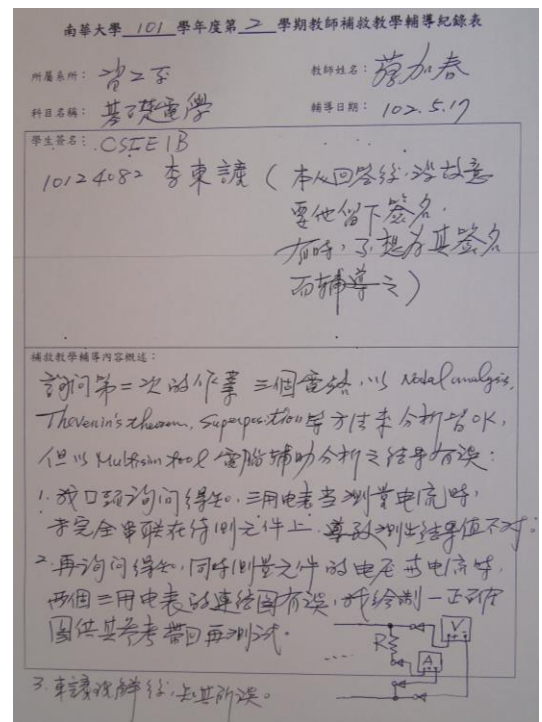 南華大學 101 學年度第 2 學期教師補救教學輔導紀錄表
所屬系所：資工系 教師姓名：蔡加春
科目名稱：基礎電學 輔導日期：102.5.17
學生簽名：CSIE1B
10124082 李東讓（本人回答後，沒故意
要他留下簽名，
有時，不想為其簽名
而輔導之）
補救教學輔導內容概述：
詢问第二次的作業 三個電路，以 Nodal analysis,
Thevenin's theorem, Superposition 等方法來分析皆OK,
但以 Multisim tool 電腦輔助分析之結果有誤：
1. 我口頭詢问得知，三用电表当測量电流時，
未完全串联在待測元件上，導致測出結果值不对。
2. 再詢问得知，同時測量元件的电压或电流時，
两個三用电表的連結图有誤，我绘制一正確
图供其参考帶回再測試。
V
R
A
3. 東讓理解後，知其所誤。